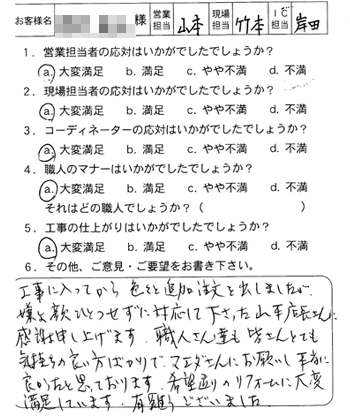 お客様名 様 営業担当 山本 現場担当 竹本 IC担当 岸田
1．営業担当者の応対はいかがでしたでしょうか？
a. 大変満足 b. 満足 c. やや不満 d. 不満
2．現場担当者の応対はいかがでしたでしょうか？
a. 大変満足 b. 満足 c. やや不満 d. 不満
3．コーディネーターの応対はいかがでしたでしょうか？
a. 大変満足 b. 満足 c. やや不満 d. 不満
4．職人のマナーはいかがでしたでしょうか？
a. 大変満足 b. 満足 c. やや不満 d. 不満
それはどの職人でしょうか？（ ）
5．工事の仕上がりはいかがでしたでしょうか？
a. 大変満足 b. 満足 c. やや不満 d. 不満
6．その他、ご意見・ご要望をお書き下さい。
工事に入ってから色々と追加注文を出しましたが、
嫌な顔ひとつせずに対応して下さった山本店長さんに
感謝申し上げます。職人さん達も皆さんとても
気持ちの良い方ばかりで、マエダさんにお願いし本当に
良かったと思っております。希望通りのリフォームに大変
満足しています。有難うございました。